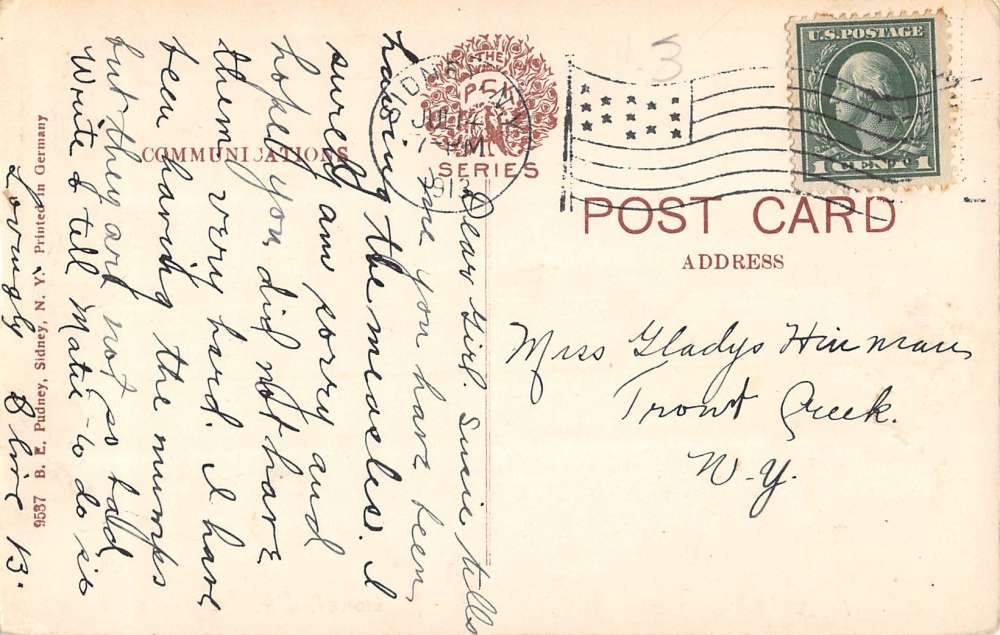 THE
PCK
SERIES
JUL 12
7-PM
1912
U.S. POSTAGE
1 CENT 1
POST CARD
ADDRESS
COMMUNICATIONS
9537 B. E. Pudney, Sidney, N. Y. Printed in Germany
Dear Girl. Susie tells
me you have been
having the measles. I
surely am sorry and
hope you did not have
them very hard. I have
been having the mumps
but they are not so bad
Write & tell Matie - to do so
Lovingly B.
Miss Gladys Hinman
Trout Creek.
N-Y.
3